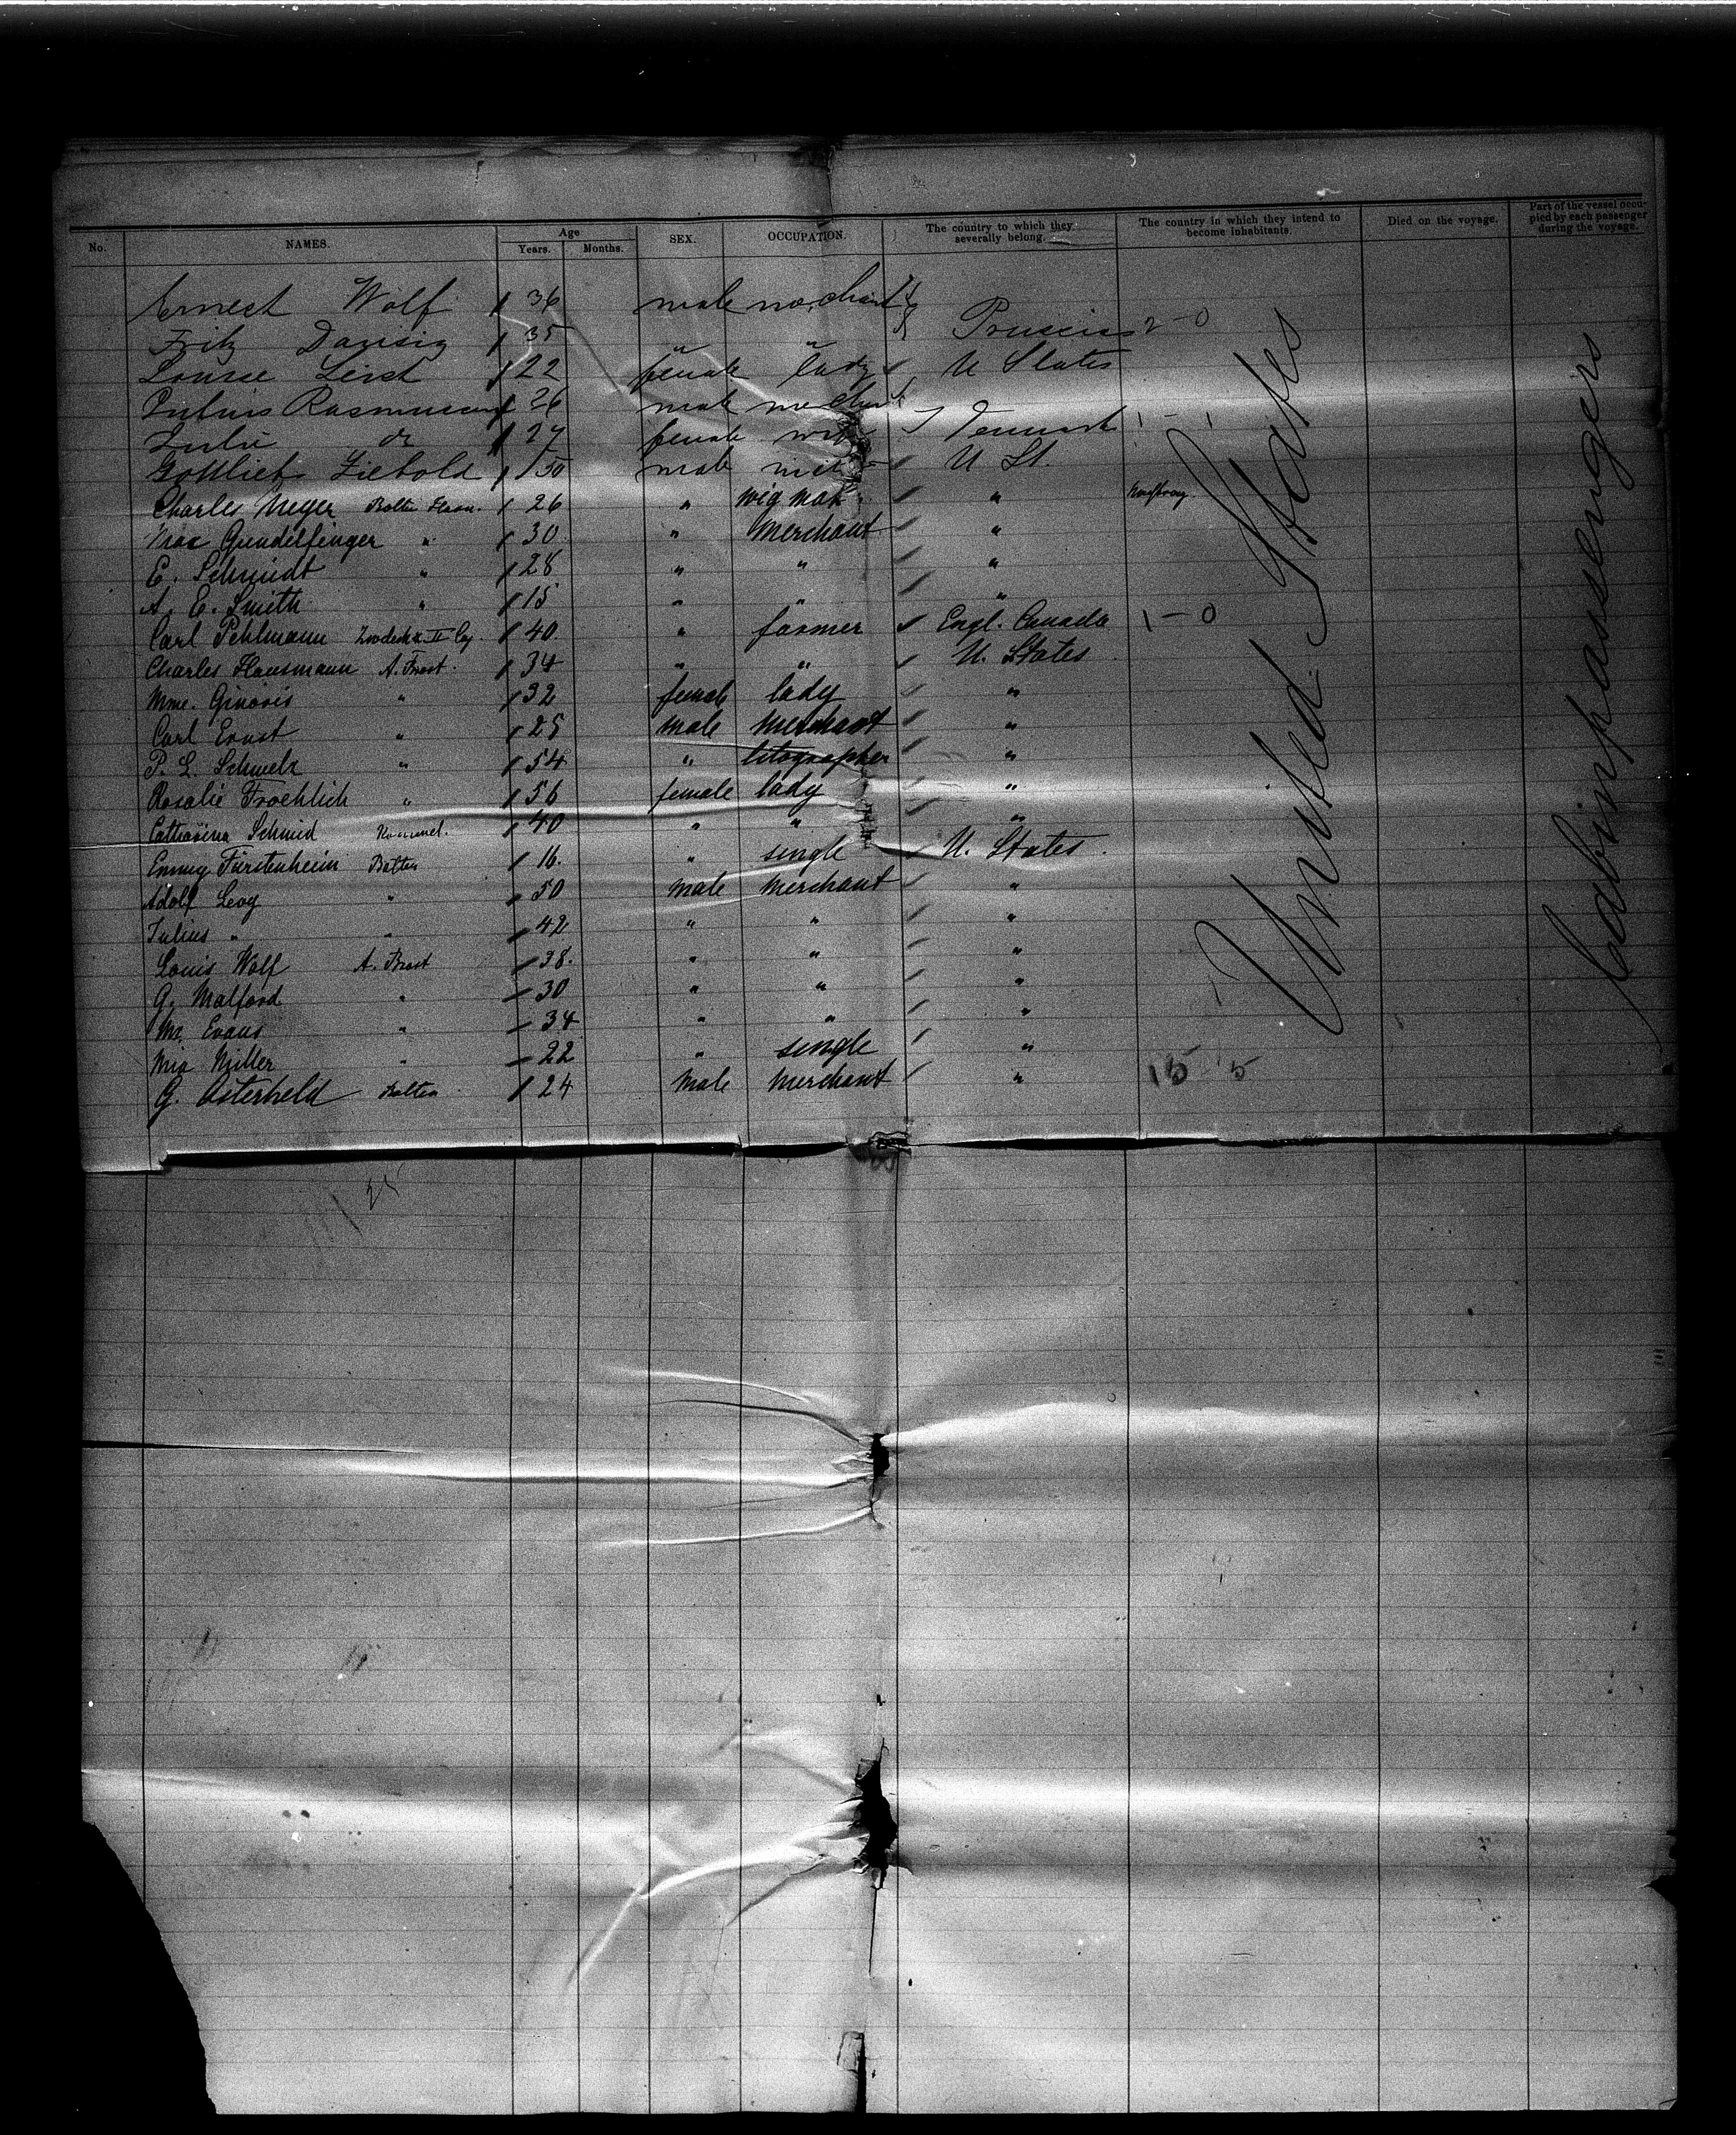 No. NAMES. Age Years. Months. SEX. OCCUPATION. The country to which they severally belong. The country in which they intend to become inhabitants. Died on the voyage. Part of the vessel occupied by each passenger during the voyage.
Ernest Wolf 36 male merchant
Fritz Danzig 35 " " Prussia 2-0
Louise Leist 22 female lady U States
Julius Rasmussen 26 male merchant
Julie do 27 female wife Denmark 1 - 1
Gottlieb Ziebold 50 male U St.
Charles Meyer Bolten 26 " wig mak "
Max Gundelfinger " 30 " merchant "
E. Schmidt " 28 " " "
A. E. Smith " 15 " " "
Carl Pehlmann 40 " farmer Engl. Canada 1-0
Charles Hausmann A. Brost. 34 " " U. States
Mme. Ginoris " 32 female lady "
Carl Ernst " 25 male merchant "
P. L. Schmelz " 54 " litographer "
Rosalie Froehlich " 56 female lady "
Catharina Schmid 40 " " "
Emmy Fürstenheim Bolten 16. " single U. States.
Adolf Levy " 50 male merchant "
Julius " " 42 " " "
Louis Wolf A. Brost 38. " " "
G. Malford " 30 " " "
Mr. Evans " 34 " " "
Mis Miller " 22 " single "
G. Osterheld Bolten 24 male merchant "
15 - 5
United States
Cabinpassengers